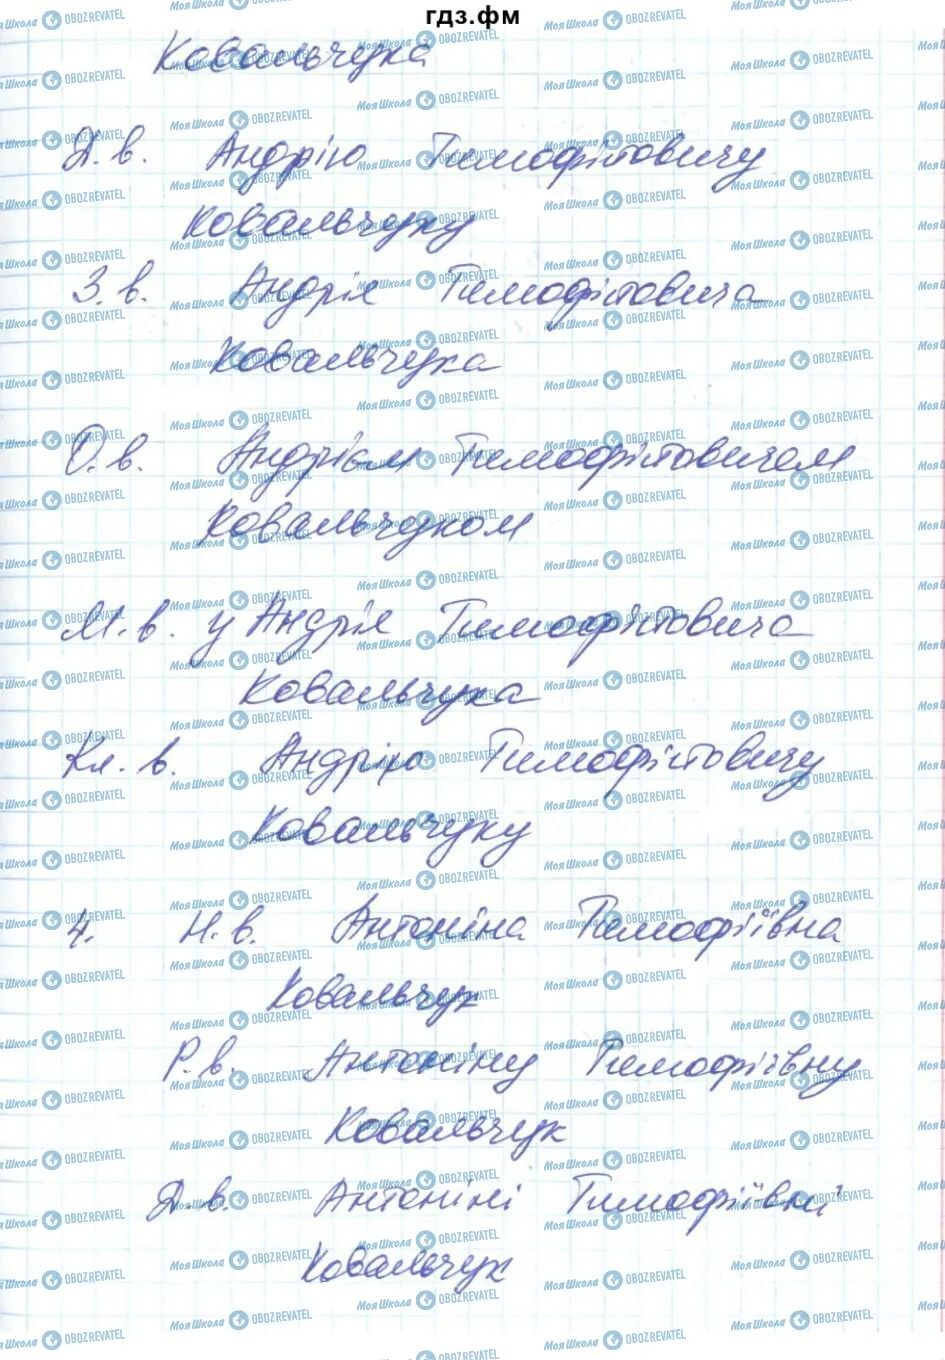 гдз.фм
Ковальчука
Д.в. Андрію Тимофійовичу
Ковальчуку
З.в. Андрія Тимофійовича
Ковальчука
О.в. Андрієм Тимофійовичем
Ковальчуком
М.в. у Андрія Тимофійовича
Ковальчука
Кл.в. Андрію Тимофійовичу
Ковальчуку
4. Н.в. Антоніна Тимофіївна
Ковальчук
Р.в. Антоніну Тимофіївну
Ковальчук
Д.в. Антоніні Тимофіївні
Ковальчук
МояШкола OBOZREVATEL